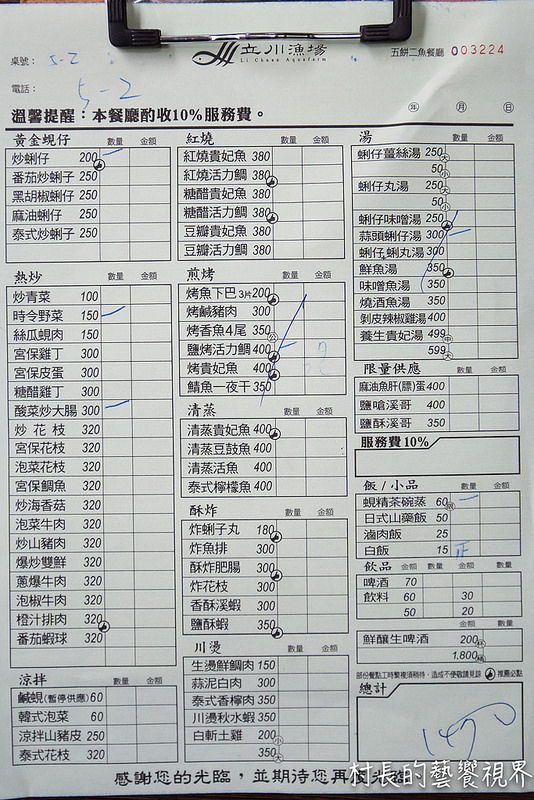 立川漁場
Li Chuan Aquafarm
五餅二魚餐廳 003224
桌號： 5-2
電話： 5-2
年 月 日
溫馨提醒：本餐廳酌收10%服務費。
黃金蜆仔 數量 金額
炒蜊仔 200
番茄炒蜊子 250
黑胡椒蜊仔 250
麻油蜊仔 250
泰式炒蜊子 250
熱炒 數量 金額
炒青菜 100
時令野菜 150
絲瓜蜆肉 150
宮保雞丁 300
宮保皮蛋 300
糖醋雞丁 300
酸菜炒大腸 300
炒花枝 320
宮保花枝 320
泡菜花枝 320
宮保鯛魚 320
炒海香菇 320
泡菜牛肉 320
炒山豬肉 320
爆炒雙鮮 320
蔥爆牛肉 320
泡椒牛肉 320
橙汁排肉 320
番茄蝦球 320
涼拌 數量 金額
鹹蜆(暫停供應) 60
韓式泡菜 60
涼拌山豬皮 250
泰式花枝 320
紅燒 數量 金額
紅燒貴妃魚 380
紅燒活力鯛 380
糖醋貴妃魚 380
糖醋活力鯛 380
豆瓣貴妃魚 380
豆瓣活力鯛 380
煎烤 數量 金額
烤魚下巴 3片 200
烤鹹豬肉 300
烤香魚4尾 350
鹽烤活力鯛 400
烤貴妃魚 400
鯖魚一夜干 350
清蒸 數量 金額
清蒸貴妃魚 400
清蒸豆鼓魚 400
清蒸活魚 400
泰式檸檬魚 400
酥炸 數量 金額
炸蜊子丸 180
炸魚排 300
酥炸肥腸 300
炸花枝 300
香酥溪蝦 300
鹽酥蝦 350
川燙 數量 金額
生燙鮮鯛肉 150
蒜泥白肉 300
泰式香檸肉 350
川燙秋水蝦 350
白斬土雞 200 小
350 大
湯 數量 金額
蜊仔薑絲湯 250 大
50 小
蜊仔丸湯 250 大
50 小
蜊仔味噌湯 250
蒜頭蜊仔湯 300
蜊仔,蜊丸湯 300
鮮魚湯 350
味噌魚湯 350
燒酒魚湯 350
剝皮辣椒雞湯 400
養生貴妃湯 499 中
599 大
限量供應 數量 金額
麻油魚肝(膘)蛋 400
鹽嗆溪哥 400
鹽酥溪哥 350
服務費10%
飯/小品 數量 金額
蜆精茶碗蒸 60
日式山藥飯 50
滷肉飯 25
白飯 15 正
飲品 金額 數量 金額 數量
啤酒 70
飲料 60 30
50 20
鮮釀生啤酒 200
1,800
部份餐點工時繁複須稍待，造成不便敬請見諒 推薦必點
總計
感謝您的光臨，並期待您再度光臨
村長的藝饗視界